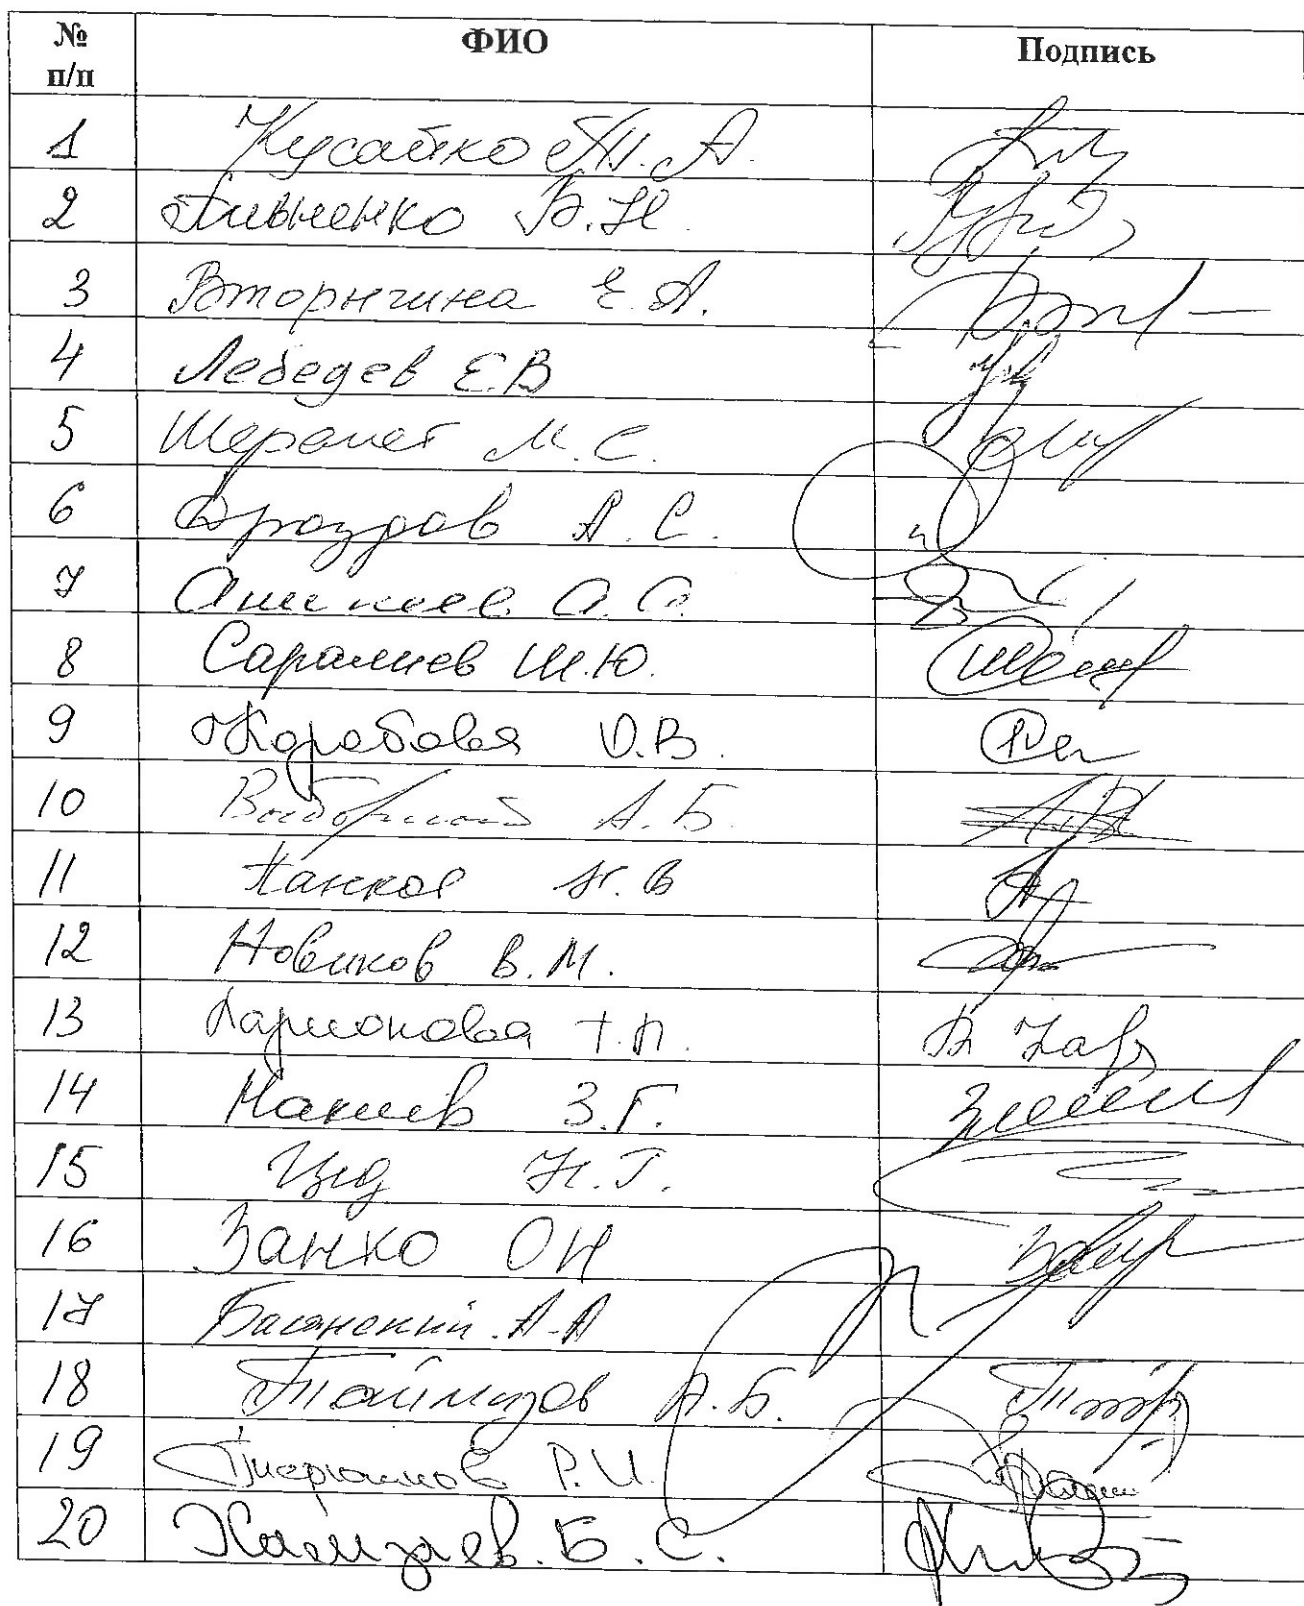 № п/п ФИО Подпись
1 Кусайко Т.А.
2 Пивненко В.Н.
3 Вторыгина Е.А.
4 Лебедев Е.В
5 Шеремет М.С.
6 Дроздов А.С.
7 Аникеев А.А.
8 Саралиев Ш.Ю.
9 Коробова О.В.
10 Выборный А.Б.
11 Панков Н.В
12 Новиков В.М.
13 Ларионова Т.П.
14 Макиев З.Г.
15 Цед Н.Г.
16 Занко ОН
17 Басанский А.А
18 Таймазов А.Б.
19 Р.И.
20 Хамзаев.Б.С.